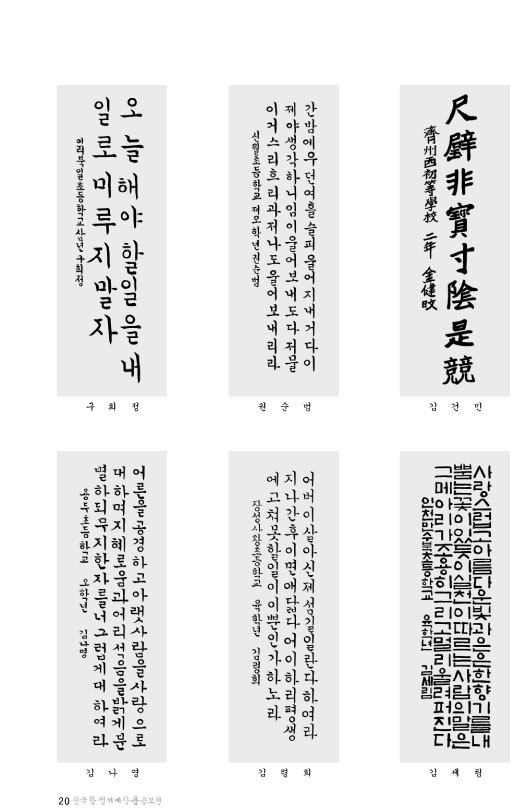 오늘해야할일을내
일로미루지말자
미리북일초등학교삼년구희정
구희정
간밤에우던여흘슬피울어지내거다이
제야생각하니임이울어보내도다저물
이거스리흐리과져나도울어보내리라
신월초등학교제오학년권순범
권순범
尺璧非寶寸陰是競
濟州西初等學校 二年 金健旼
김건민
어른을공경하고아랫사람을사랑으로
대하며지혜로움과어리석음을밝게분
별하되무지한자를너그럽게대하여라
용두초등학교 오학년 김나영
김나영
어버이살아신제섬길일란다하여라
지나간후이면애닯다어이하리평생
에고쳐못할일이이뿐인가하노라
장성사창초등학교 육학년 김령희
김령희
사랑스럽고아름다운빛과은은한향기를내
뿜는꽃이있듯이실천이따르는사람의말은
그메아리가조용히그리고멀리울려퍼진다
인천만수북초등학교 육학년 김세림
김세림
20 전국학생서예작품공모전